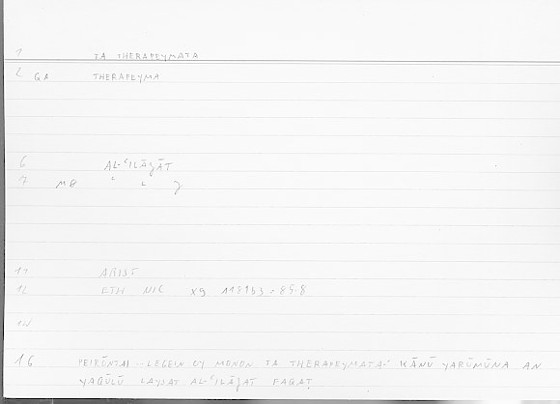 1 TA THERAPEYMATA
2 GA THERAPEYMA
6 AL-ʿILĀǦĀT
7 MR ʿ L Ǧ
11 ARIST
12 ETH NIC X9
14
16 PEIRŌNTAI - LEGEIN OY MONON TA THERAPEYMATA - KĀNŪ YARŪMŪNA AN
YAQŪLŪ LAYSAT AL-ʿILĀǦĀT FAQAṬ